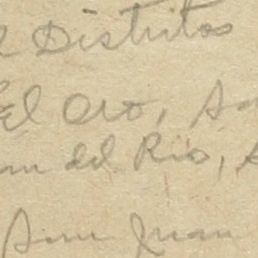 Distritos
El Oro, S
del Rio, S
San Juan